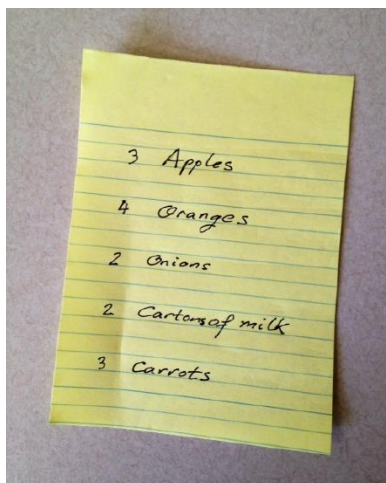 3 Apples
4 Oranges
2 Onions
2 Cartons of milk
3 Carrots